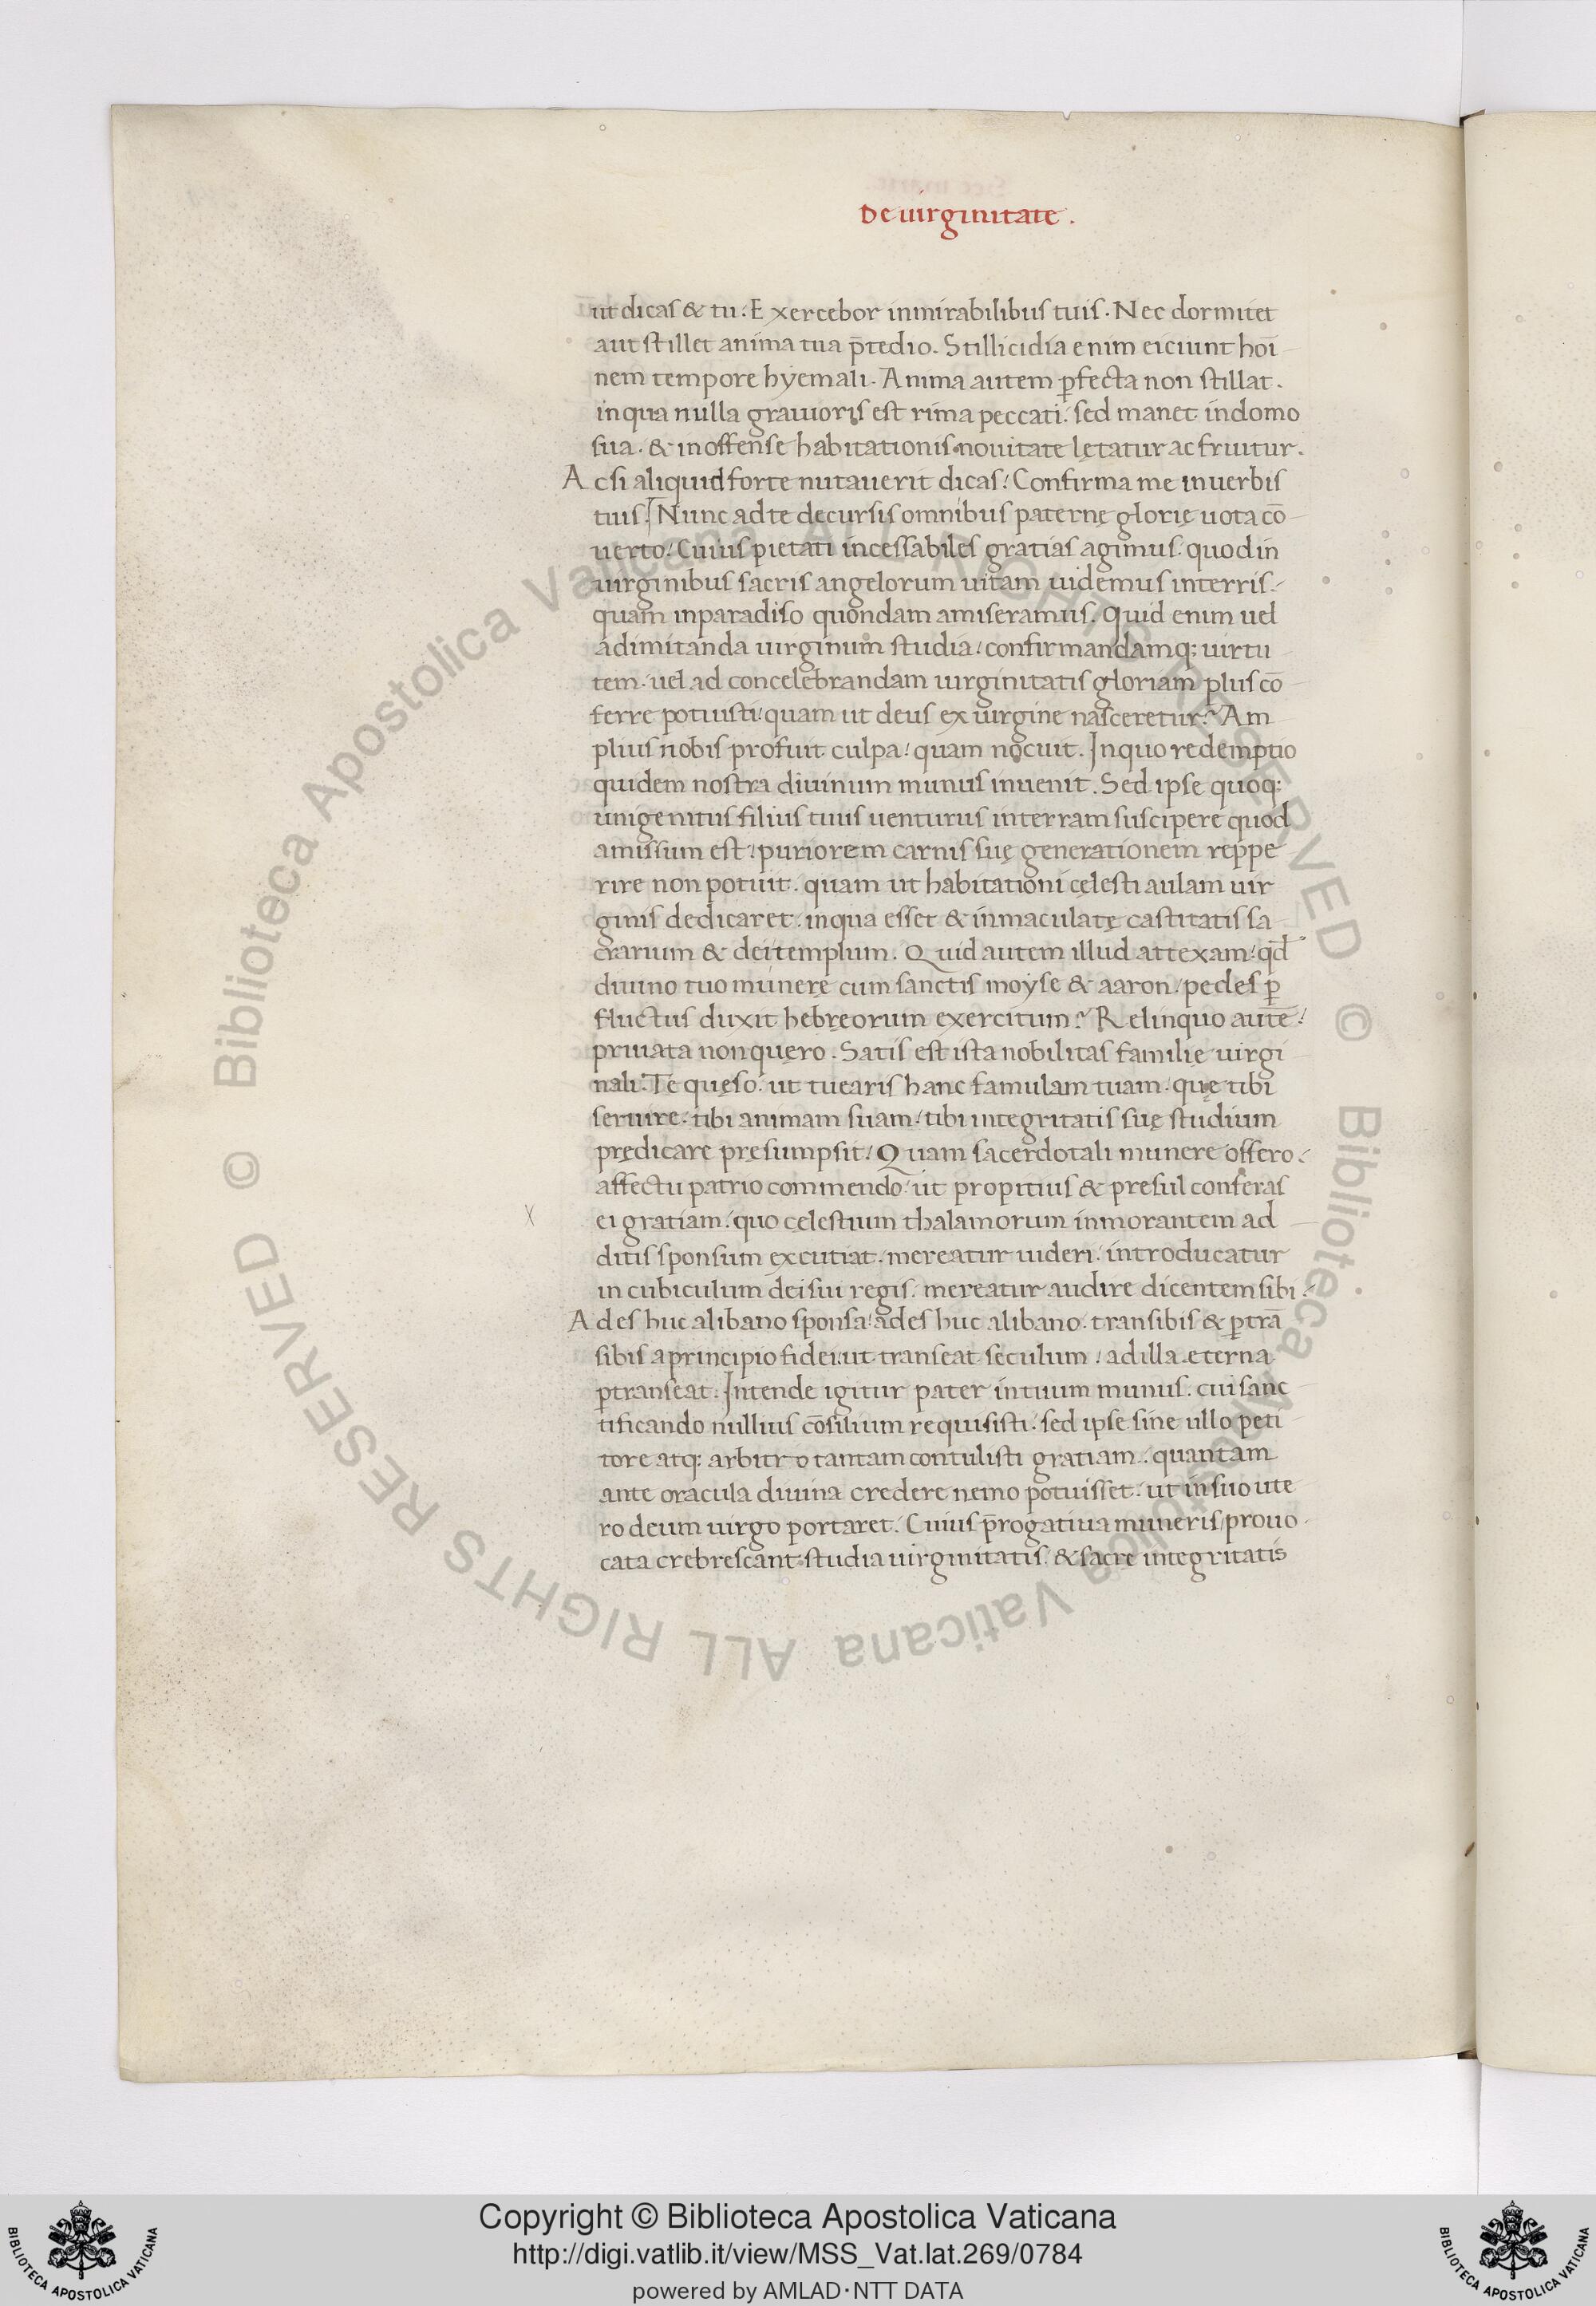 De uirginitate.
ut dicas & tu. Exercebor inmirabilibus tuis. Nec dormitet
aut stillet anima tua p̄tedio. Stillicidia enim eiciunt hoī
nem tempore hyemali. Anima autem ꝑfecta non stillat.
inqua nulla grauioris est rima peccati. sed manet indomo
sua. & inoffense habitationis nouitate lętatur ac fruitur.
Ac si aliquid forte nutauerit dicas! Confirma me inuerbis
tuis. Nunc adte decursis omnibus paternę glorię uota cō
uerto! Cuius pietati incessabiles gratias agimus. quodin
uirginibus sacris angelorum uitam uidemus interris.
quam inparadiso quondam amiseramus. Quid enim uel
adimitanda uirginum studia! confirmandamq; uirtu
tem. uel ad concelebrandam uirginitatis gloriam plus cō
ferre potuisti! quam ut deus ex uirgine nasceretur? Am
plius nobis profuit culpa! quam nocuit. Inquo redemptio
quidem nostra diuinum munus inuenit. Sed ipse quoq;
unigenitus filius tuus uenturus interram suscipere quod
amissum est! puriorem carnis suę generationem reppe
rire non potuit. quam ut habitationi cęlesti aulam uir
ginis dedicaret. inqua esset & inmaculatę castitatis sa
crarium & dei templum. Quid autem illud attexam! qd̄
diuino tuo munere cum sanctis moyse & aaron! pedes ꝑ
fluctus duxit hebręorum exercitum? Relinquo autē!
priuata non quero. Satis est ista nobilitas familię uirgi
nali. Te quęso. ut tuearis hanc famulam tuam. quę tibi
seruire. tibi animam suam! tibi integritatis suę studium
prędicare pręsumpsit! Quam sacerdotali munere offero.
affectu patrio commendo. ut propitius & presul conferas
ei gratiam. quo cęlestium thalamorum inmorantem ad
ditis sponsum excutiat. mereatur uideri. introducatur
in cubiculum dei sui regis. mereatur audire dicentem sibi.
Ades huc alibano sponsa! ades huc alibano. transibis & ꝑtrā
sibis aprincipio fidei. ut transeat seculum! adilla eterna
ꝑtranseat. Intende igitur pater intuum munus. cui sanc
tificando nullius cōsilium requisisti. sed ipse sine ullo peti
tore atq; arbitro tantam contulisti gratiam. quantam
ante oracula diuina credere nemo potuisset. ut insuo ute
ro deum uirgo portaret. Cuius p̄rogatiua muneris prouo
cata crebrescant studia uirginitatis. & sacrę integritatis
X
© Biblioteca Apostolica Vaticana ALL RIGHTS RESERVED © Biblioteca Apostolica Vaticana ALL RIGHTS RESERVED
Copyright © Biblioteca Apostolica Vaticana
http://digi.vatlib.it/view/MSS_Vat.lat.269/0784
powered by AMLAD·NTT DATA
BIBLIOTECA APOSTOLICA VATICANA
BIBLIOTECA APOSTOLICA VATICANA